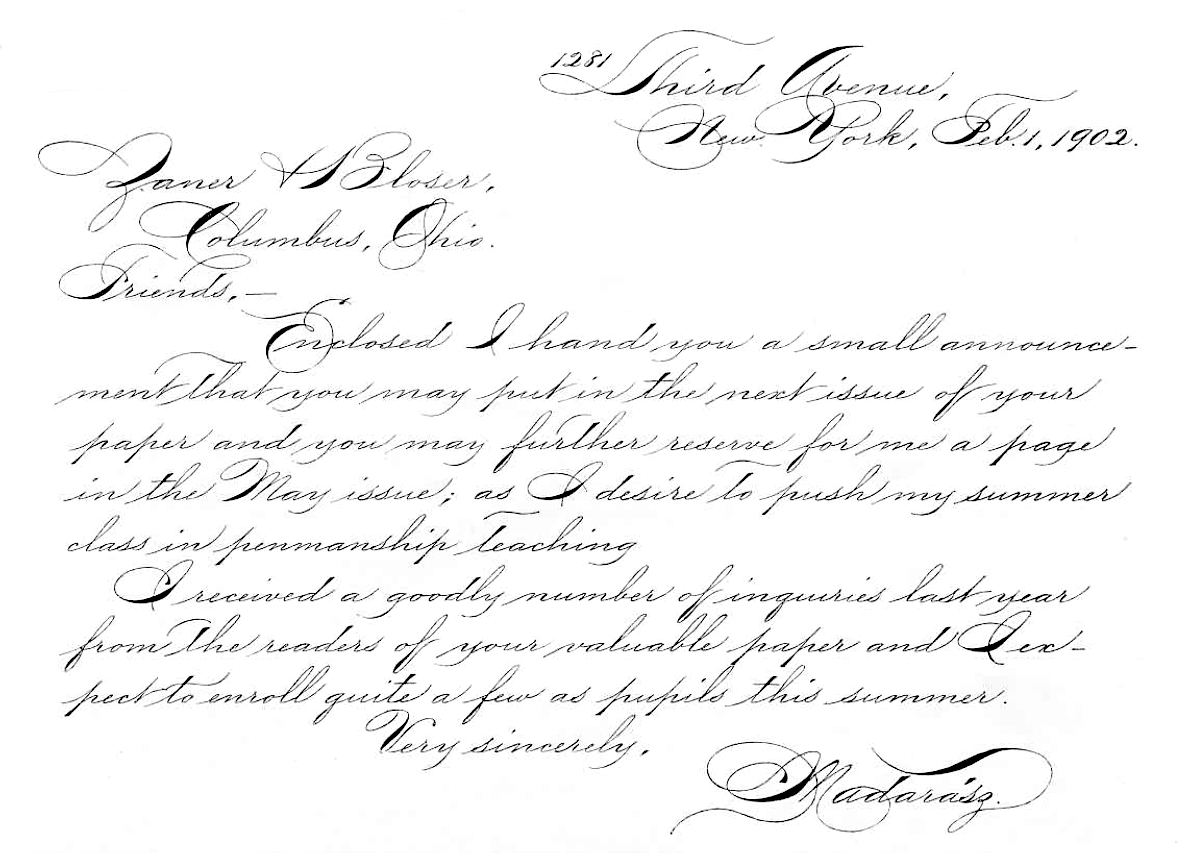 1281 Third Avenue,
New York, Feb. 1, 1902.
Zaner & Bloser,
Columbus, Ohio.
Friends,—
Enclosed I hand you a small announce-
ment that you may put in the next issue of your
paper and you may further reserve for me a page
in the May issue; as I desire to push my summer
class in penmanship teaching
I received a goodly number of inquiries last year
from the readers of your valuable paper and I ex-
pect to enroll quite a few as pupils this summer.
Very sincerely,
Madarász.